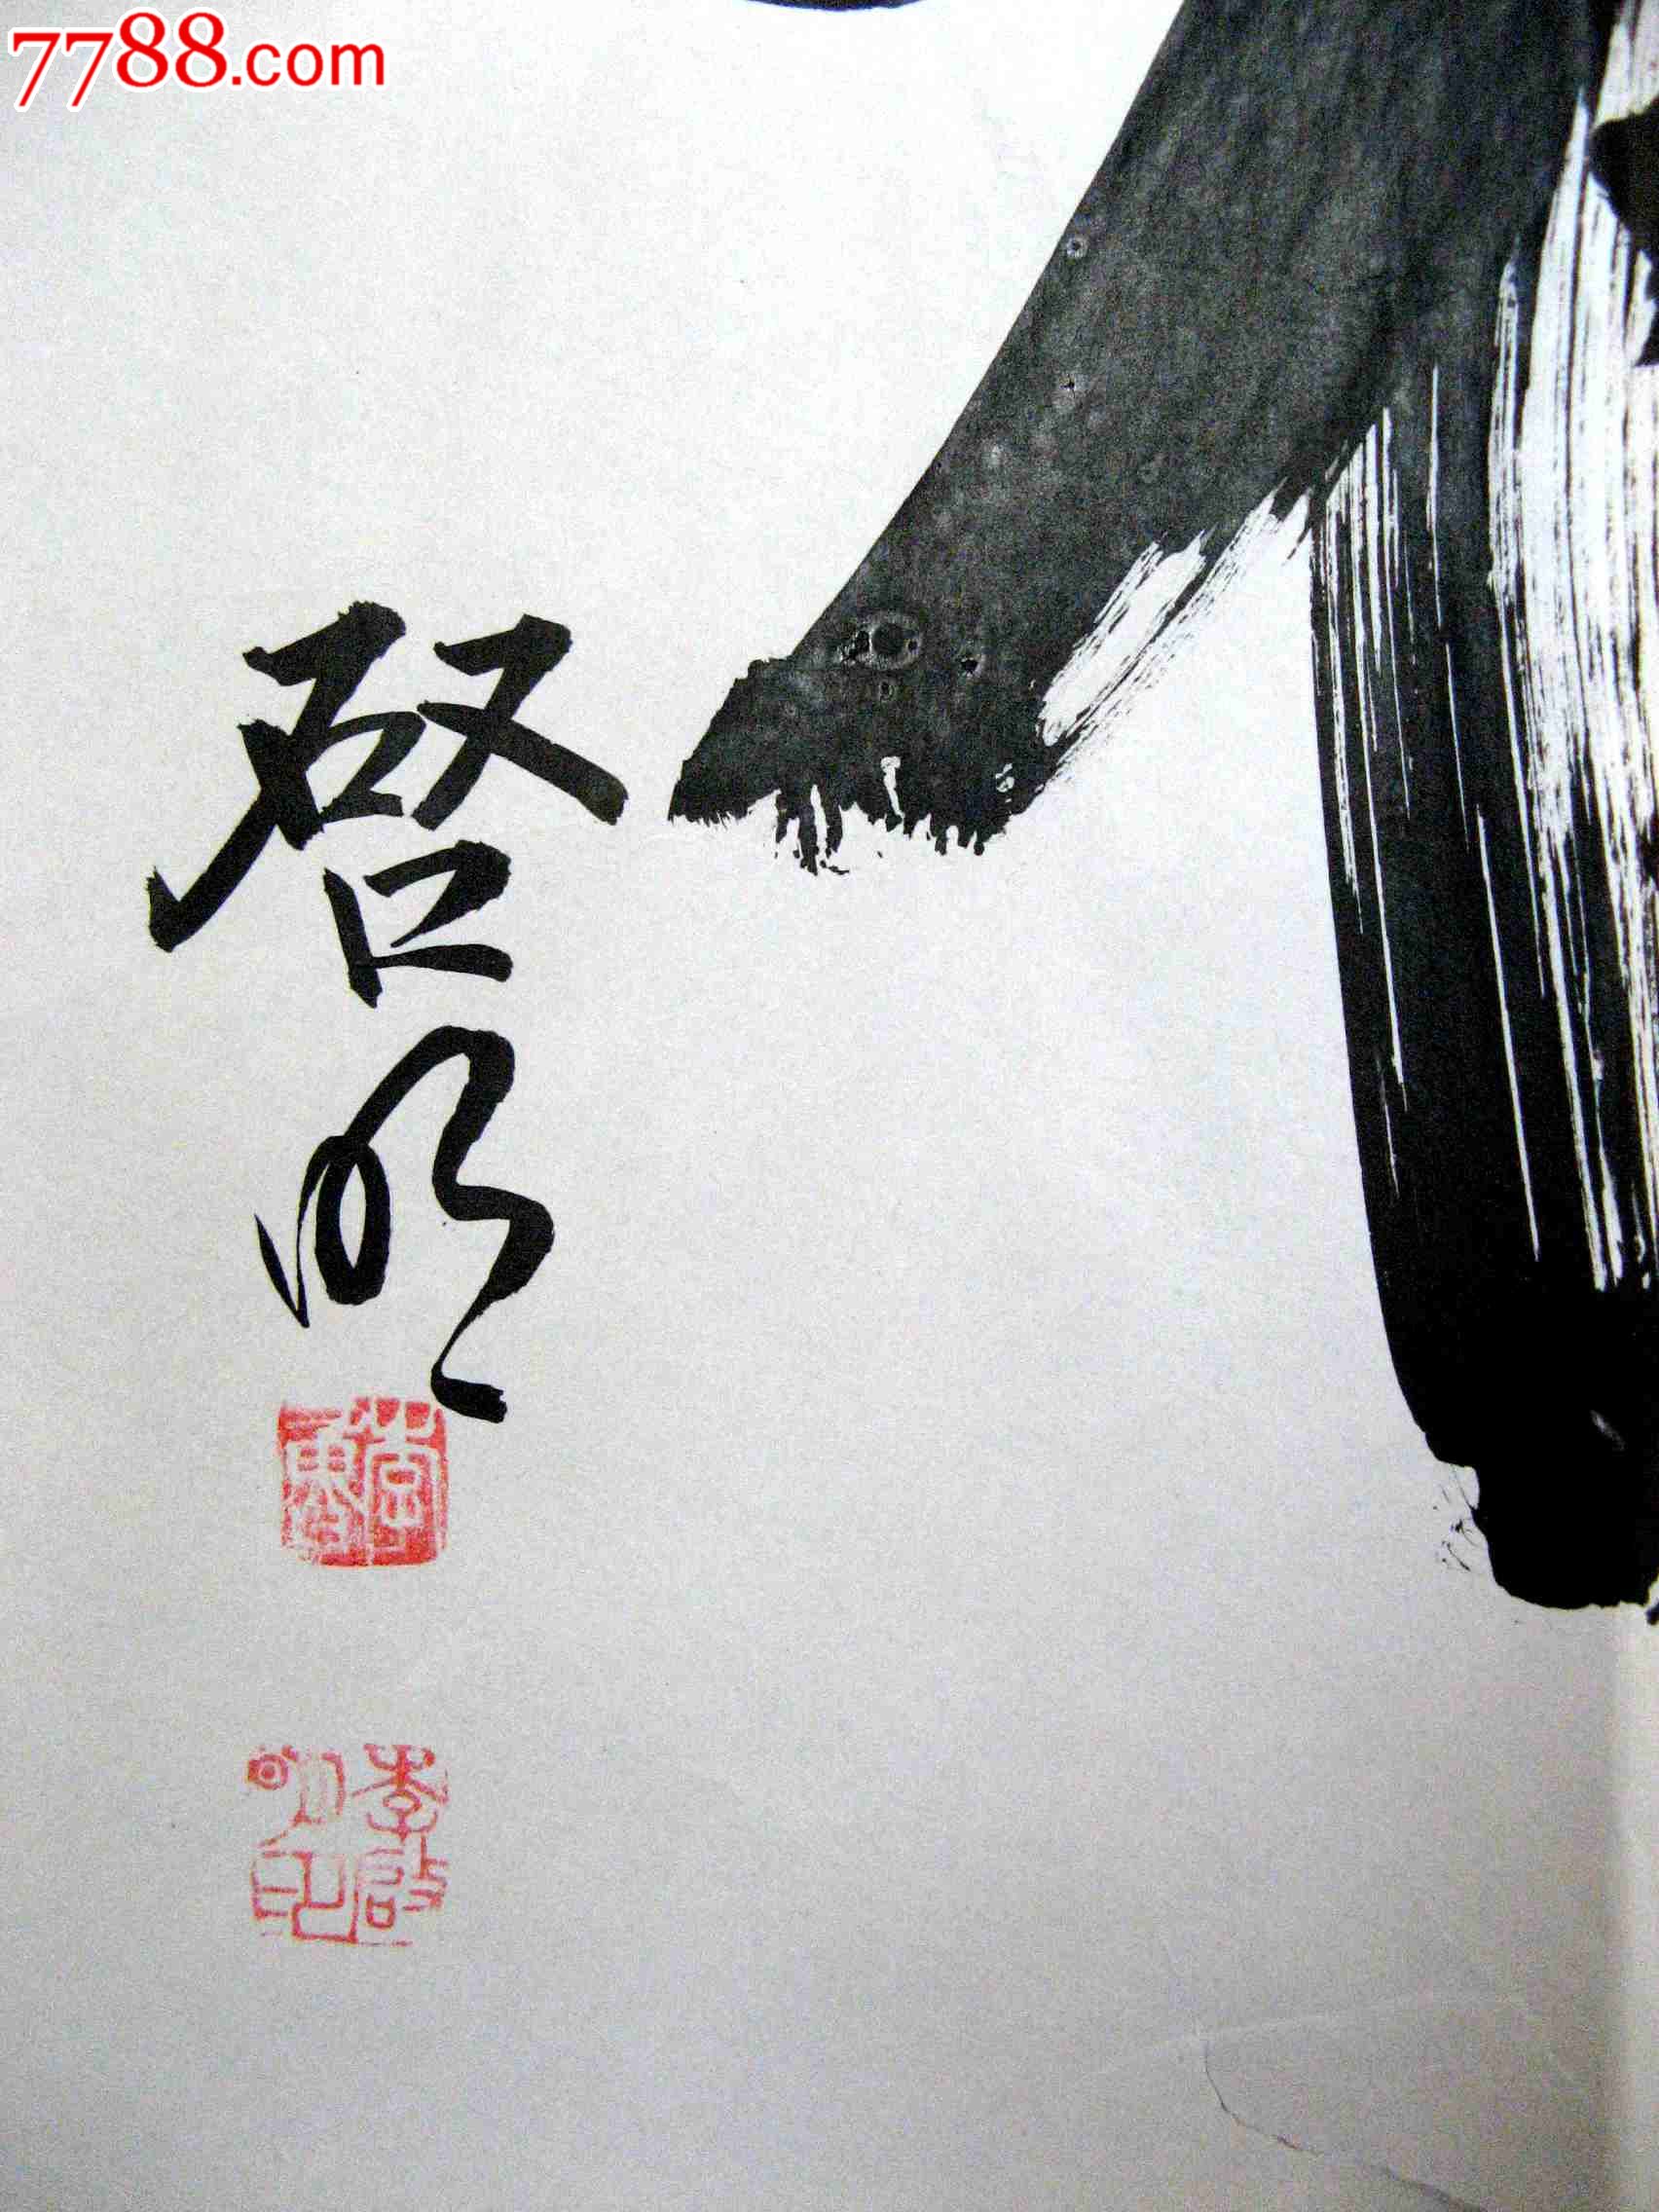 7788.com
啓明
李啟
明印